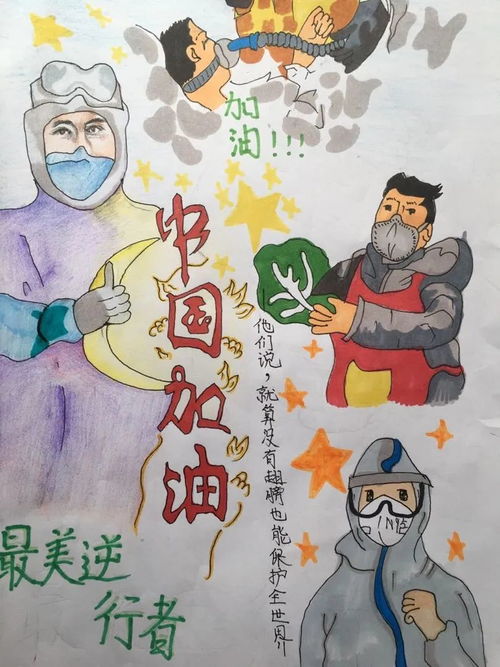 加
油!!!
中国加油
他们说，就算没有翅膀也能保护全世界
最美逆
行者